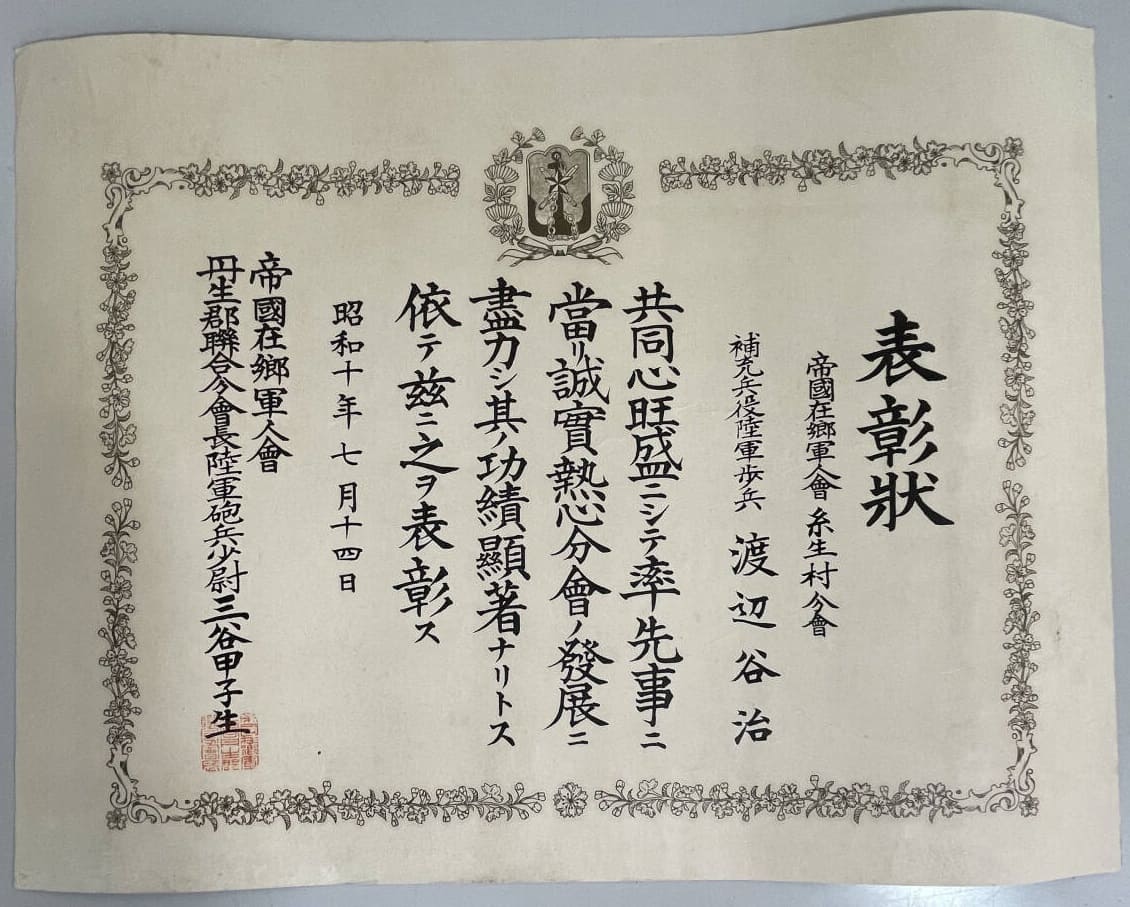 表彰狀
帝國在鄉軍人會糸生村分會
補充兵役陸軍歩兵 渡辺谷治
共同心旺盛ニシテ率先事ニ
當リ誠實熱心分會ノ發展ニ
盡力シ其ノ功績顯著ナリトス
依テ玆ニ之ヲ表彰ス
昭和十年七月十四日
帝國在鄉軍人會
丹生郡聯合分會長陸軍砲兵少尉三谷甲子生